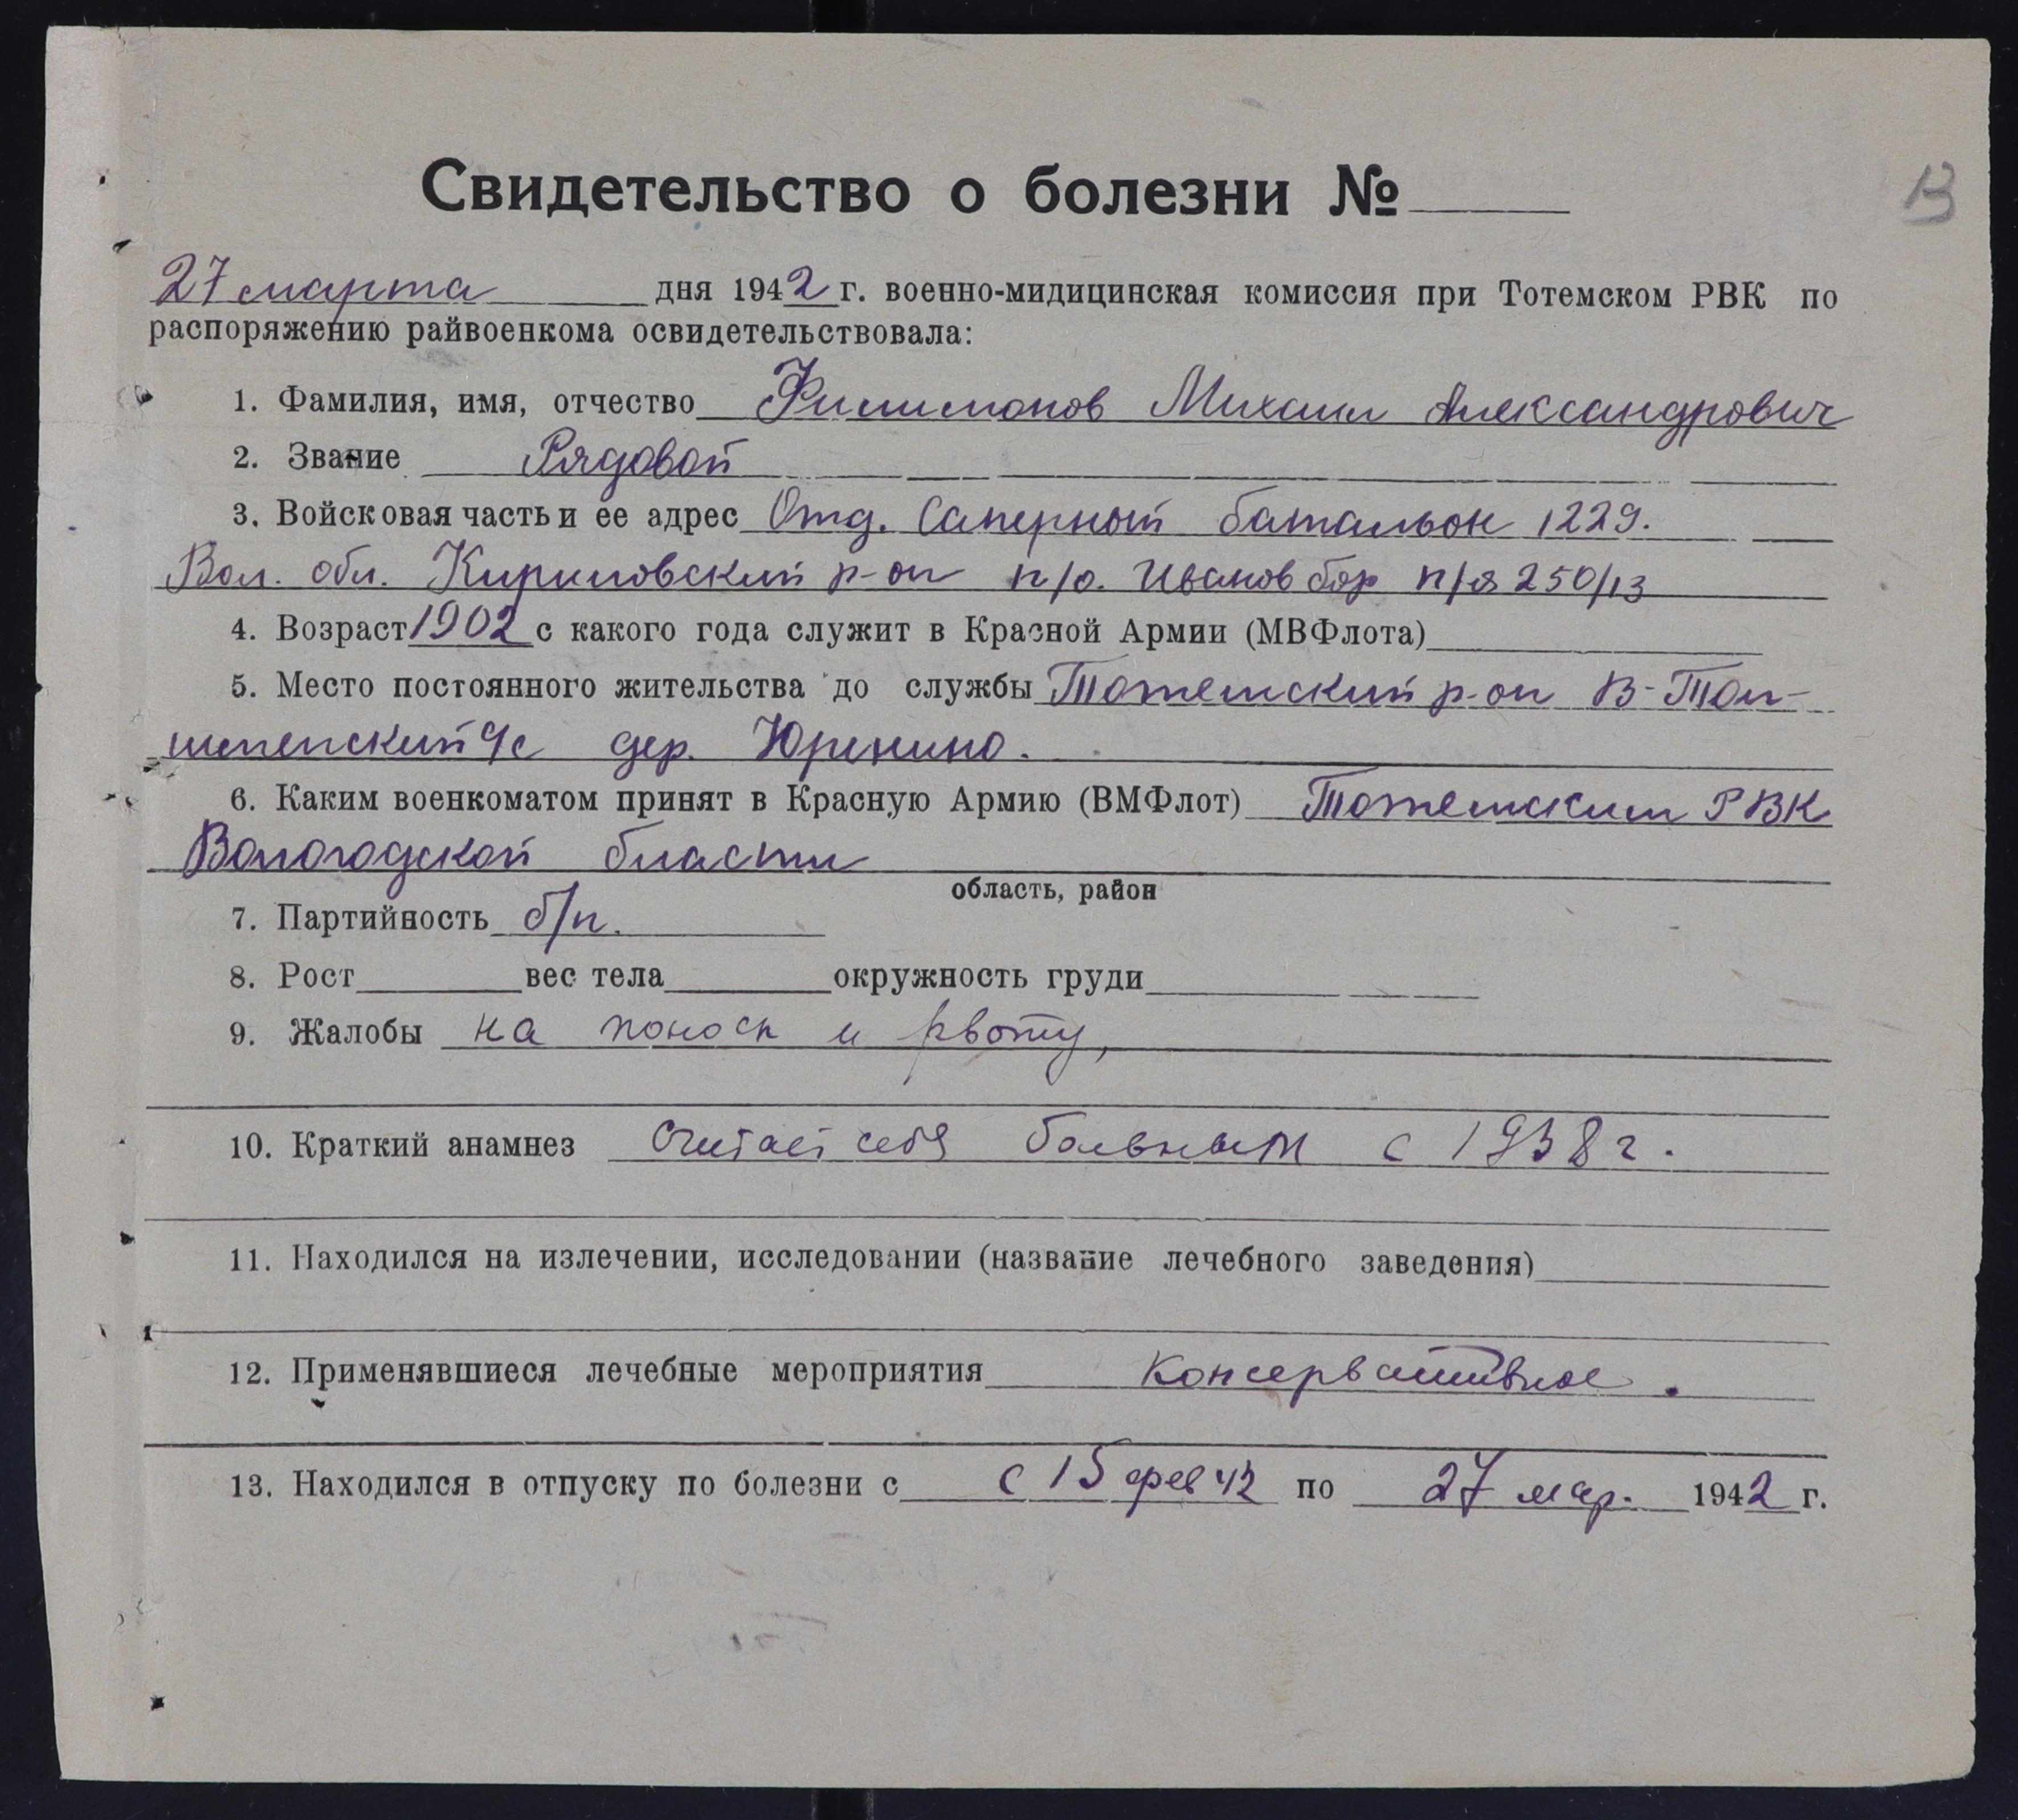 Свидетельство о болезни №
13
27 марта дня 1942 г. военно-мидицинская комиссия при Тотемском РВК по
распоряжению райвоенкома освидетельствовала:
1. Фамилия, имя, отчество Филимонов Михаил Александрович
2. Звание Рядовой
3. Войсковая часть и ее адрес Отд. Саперный батальон 1229.
Вол. обл. Кириловский р-он п/о. Иванов бор п/я 250/13
4. Возраст 1902 с какого года служит в Красной Армии (МВФлота)
5. Место постоянного жительства до службы Тотемский р-он В-Тол-
шменский с/с дер. Юренино.
6. Каким военкоматом принят в Красную Армию (ВМФлот) Тотемским РВК
Вологодской бласти
область, район
7. Партийность б/п.
8. Рост вес тела окружность груди
9. Жалобы на понос и рвоту,
10. Краткий анамнез Считает себя больным с 1938 г.
11. Находился на излечении, исследовании (название лечебного заведения)
12. Применявшиеся лечебные мероприятия Консервативное.
13. Находился в отпуску по болезни с с 15 фев 42 по 27 мар. 1942 г.